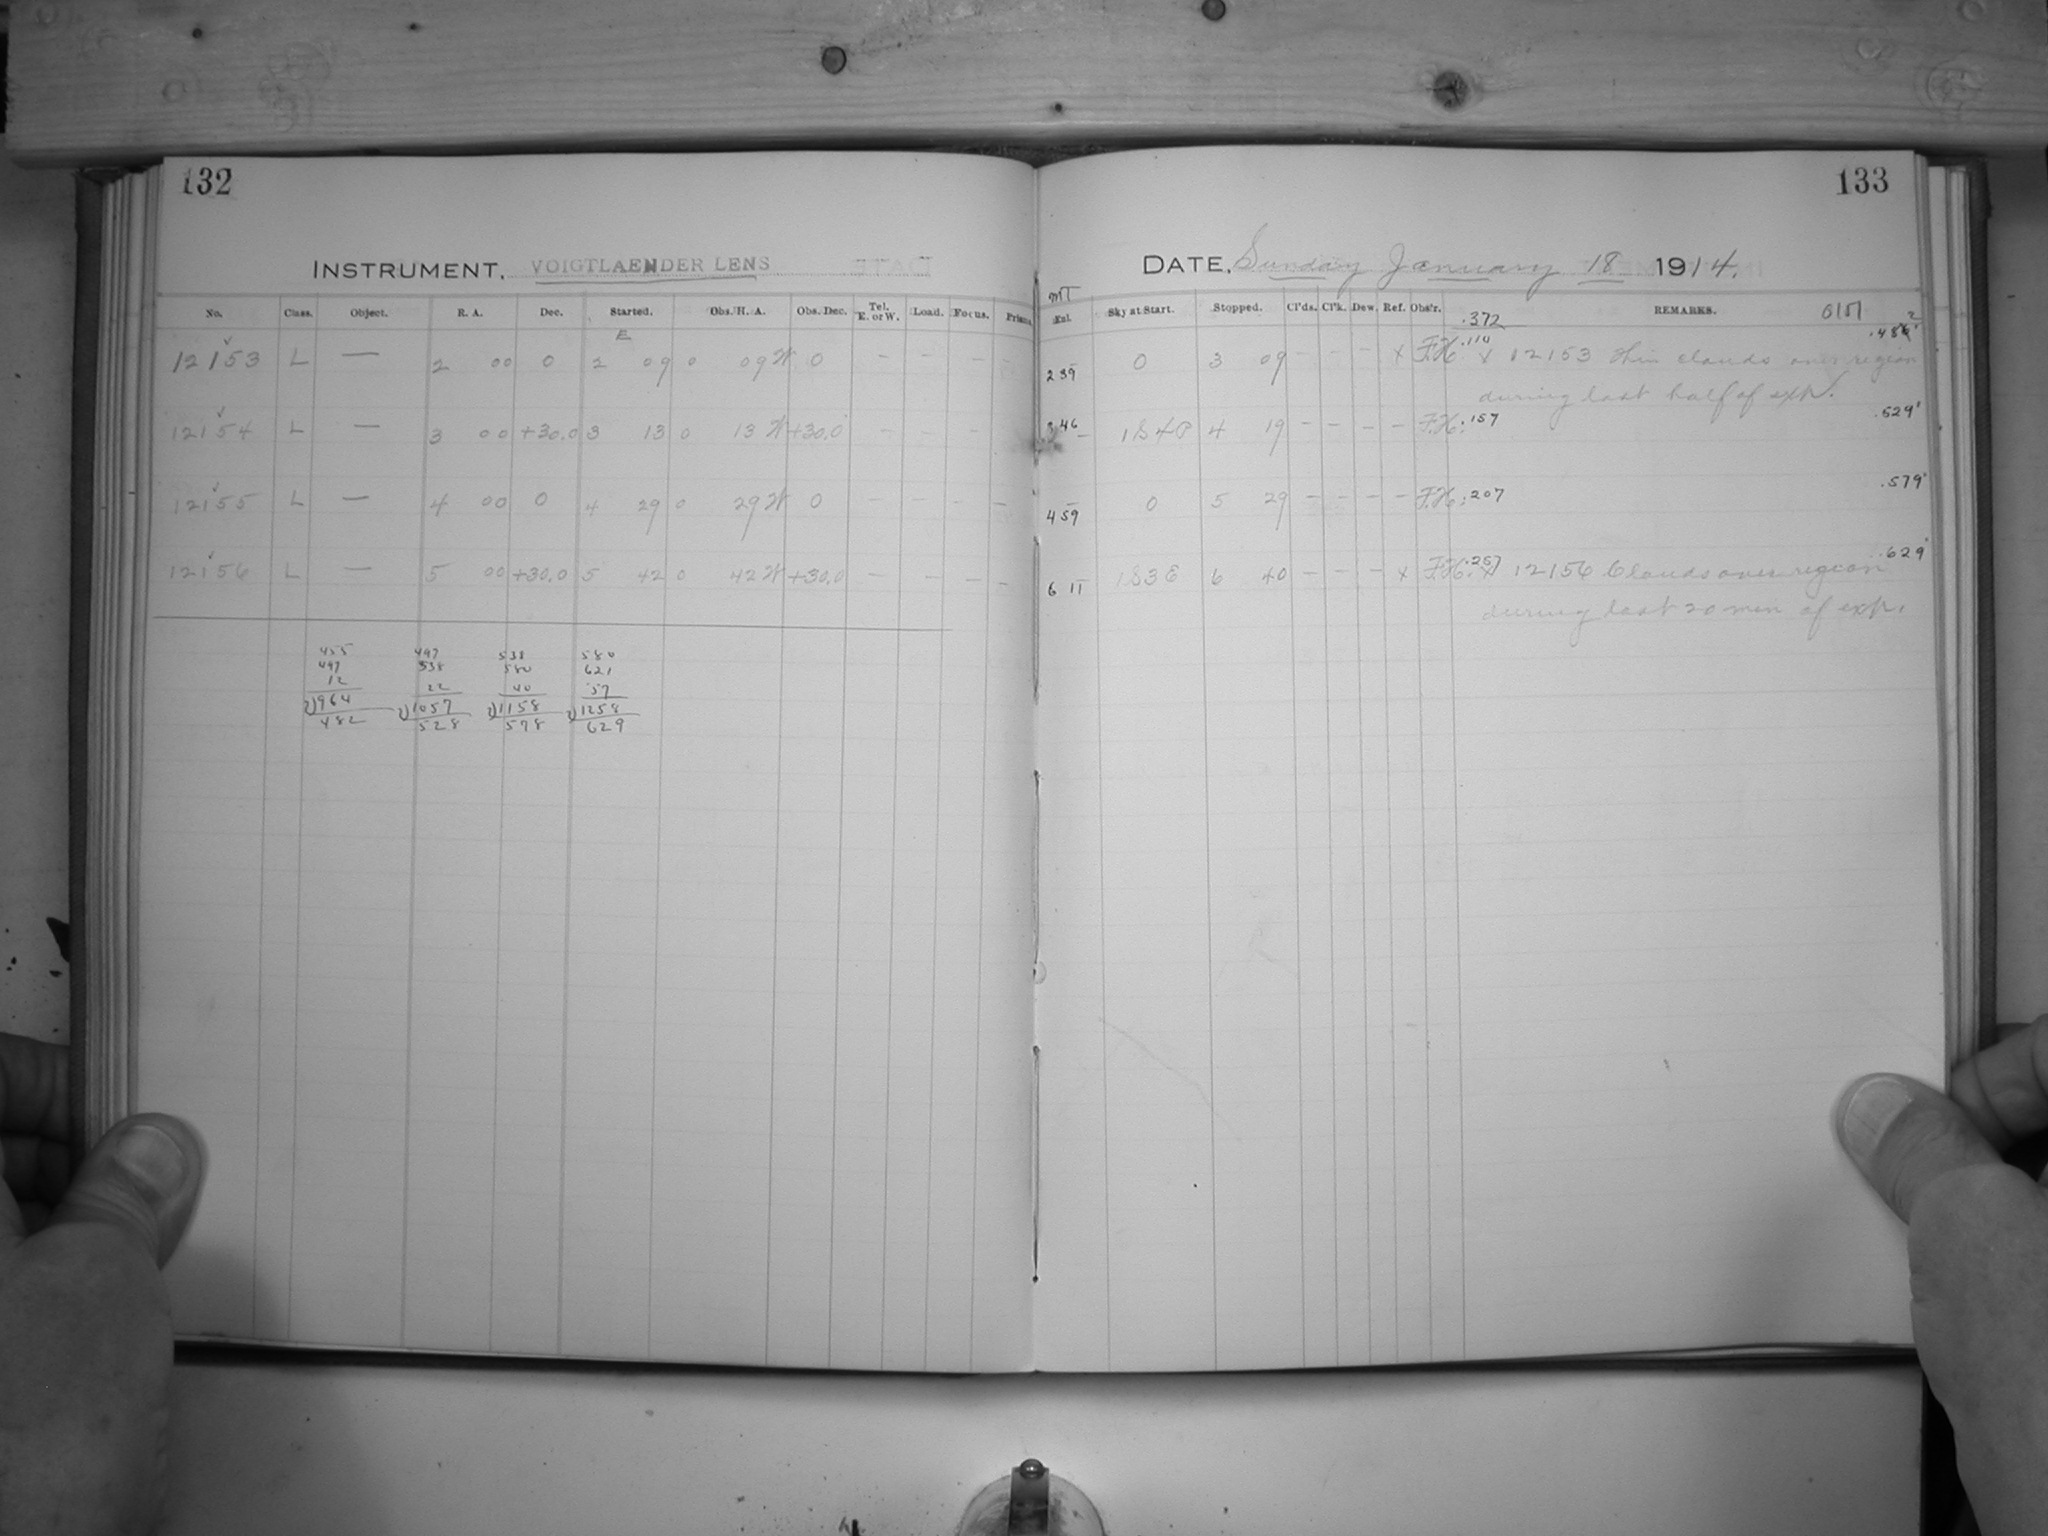 132
INSTRUMENT, VOIGTLAENDER LENS
No. Class. Object. R. A. Dec. Started. Obs. H. A. Obs. Dec. Tel. E. or W. Load. Focus. Prism.
E
12153 L — 2 00 0 2 09 0 09 W 0 - - -
12154 L — 3 00 +30.0 3 13 0 13 W +30.0 - - - -
12155 L — 4 00 0 4 29 0 29 W 0 - - - -
12156 L — 5 00 +30.0 5 42 0 42 W +30.0 - - - -
455 497 538 580
497 538 580 621
12 22 40 57
2)964 2)1057 2)1158 2)1258
482 528 578 629
133
DATE, Sunday January 18 1914.
MT
Exl. Sky at Start. Stopped. Cl'ds. Cl'k. Dew. Ref. Obs'r. REMARKS.
.372
2 39 0 3 09 - - - x F.H. .110 x 12153 Thin clouds over region
during last half of exp.
3 46 1S4P 4 19 - - - - F.H. .157 .529
4 59 0 5 29 - - - - F.H. .207 .579
6 11 1S3E 6 40 - - - x F.H. .257 x 12156 Clouds over region .629
during last 20 min of exp.